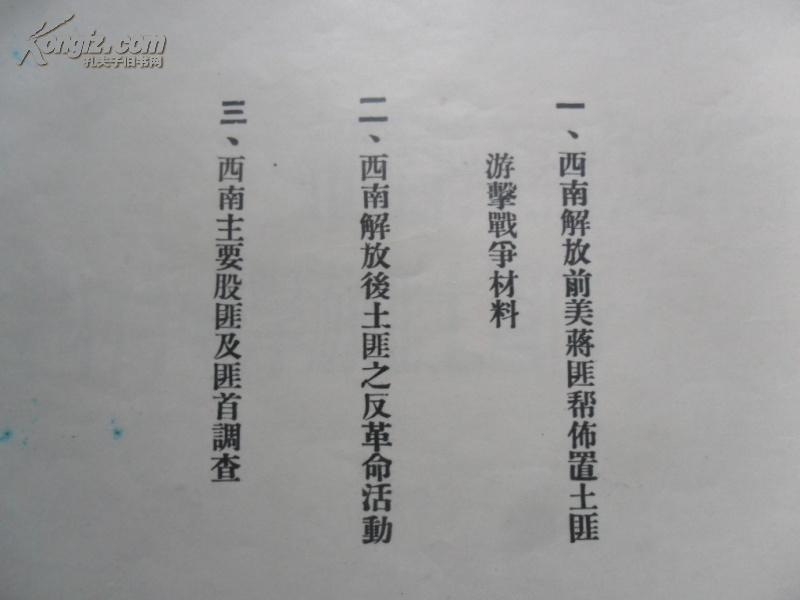 一、西南解放前美蔣匪帮佈置土匪
游擊戰爭材料
二、西南解放後土匪之反革命活動
三、西南主要股匪及匪首調查
Kongfz.com
孔夫子旧书网